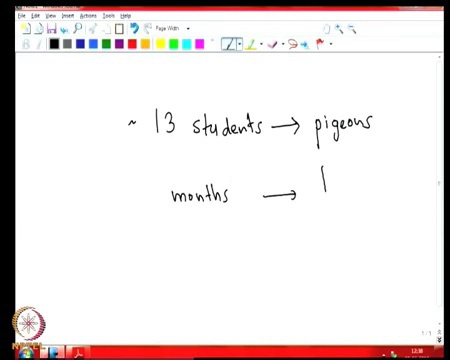 File Edit View Insert Actions Tools Help
Page Width
~ 13 students → pigeons
months →
1/1
NPTEL
12:38